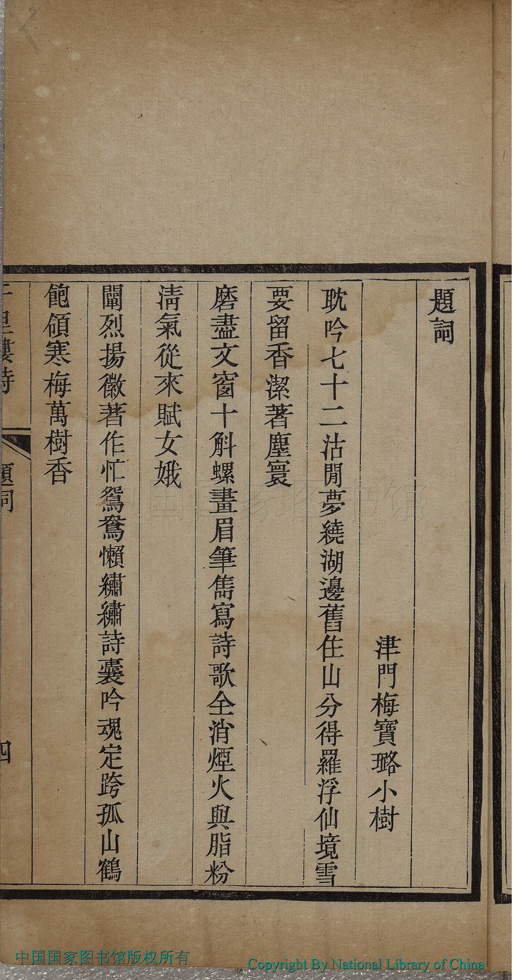 題詞
津門梅寶璐小樹
耽吟七十二沽閒夢繞湖邊舊住山分得羅浮仙境雪
要留香潔著塵寰
磨盡文窗十斛螺畫眉筆雋寫詩歌全消煙火與脂粉
淸氣從來賦女娥
闡烈揚徽著作忙鴛鴦懶繡繡詩囊吟魂定跨孤山鶴
飽領寒梅萬樹香
題詞
四
中国国家图书馆版权所有
Copyright By National Library of China